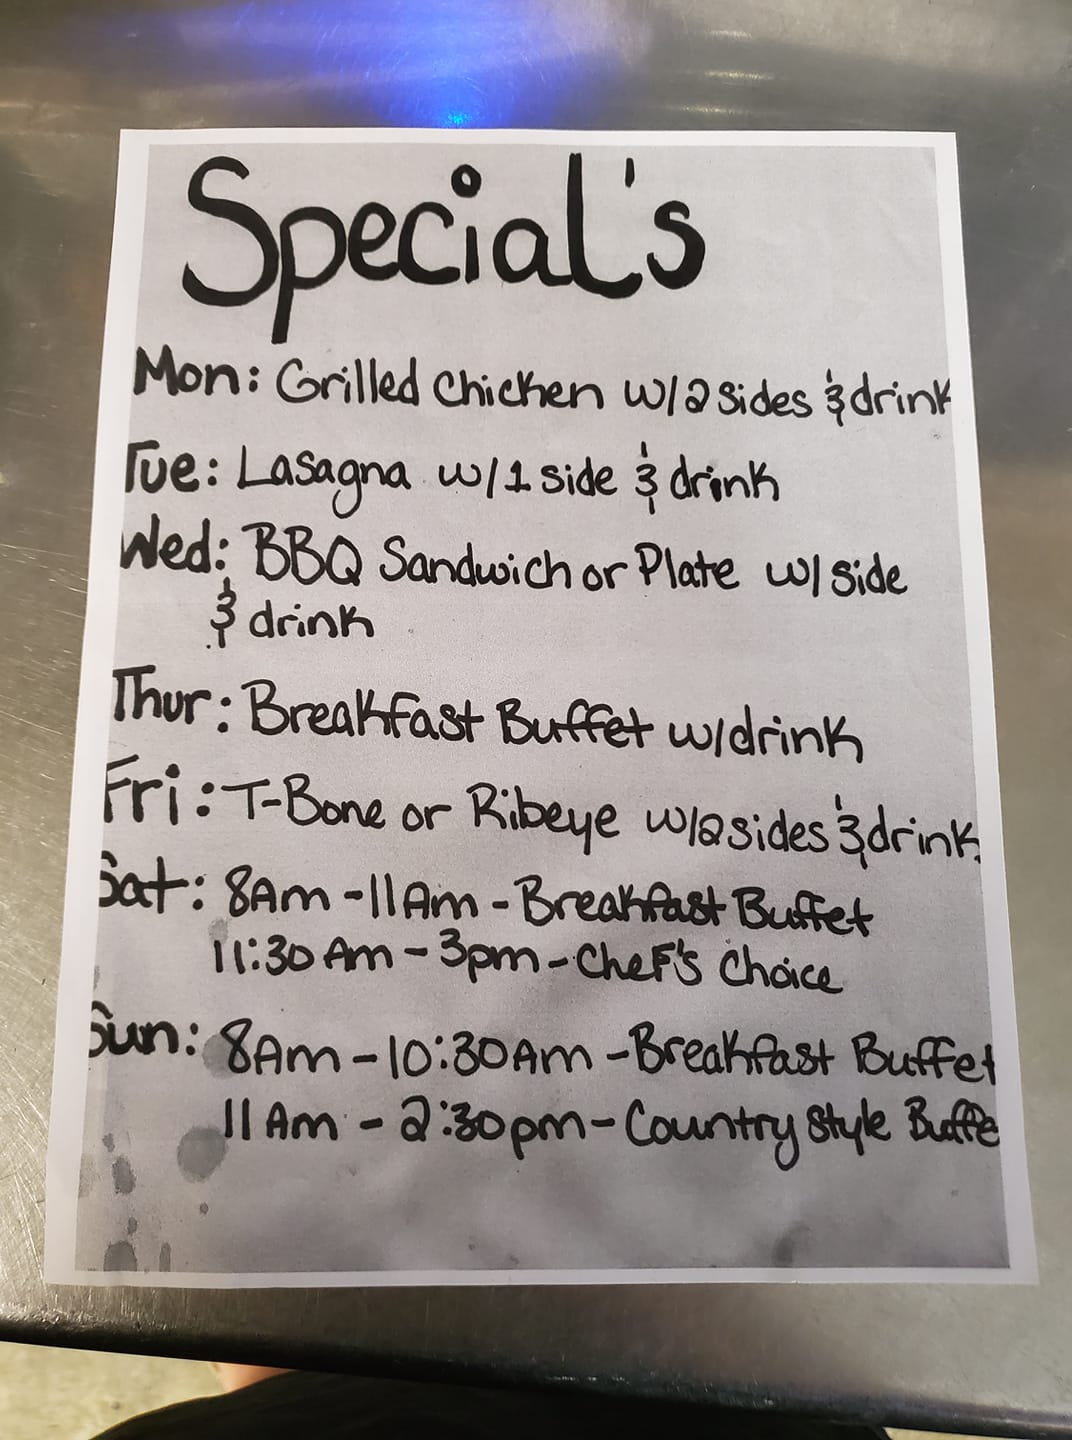 Special's
Mon: Grilled Chicken w/2 sides & drink
Tue: Lasagna w/1 side & drink
Wed: BBQ Sandwich or Plate w/ side
& drink
Thur: Breakfast Buffet w/drink
Fri: T-Bone or Ribeye w/2 sides & drink
Sat: 8Am -11Am - Breakfast Buffet
11:30 Am - 3pm - Chef's Choice
Sun: 8Am - 10:30Am - Breakfast Buffet
11Am - 2:30pm - Country Style Buffe